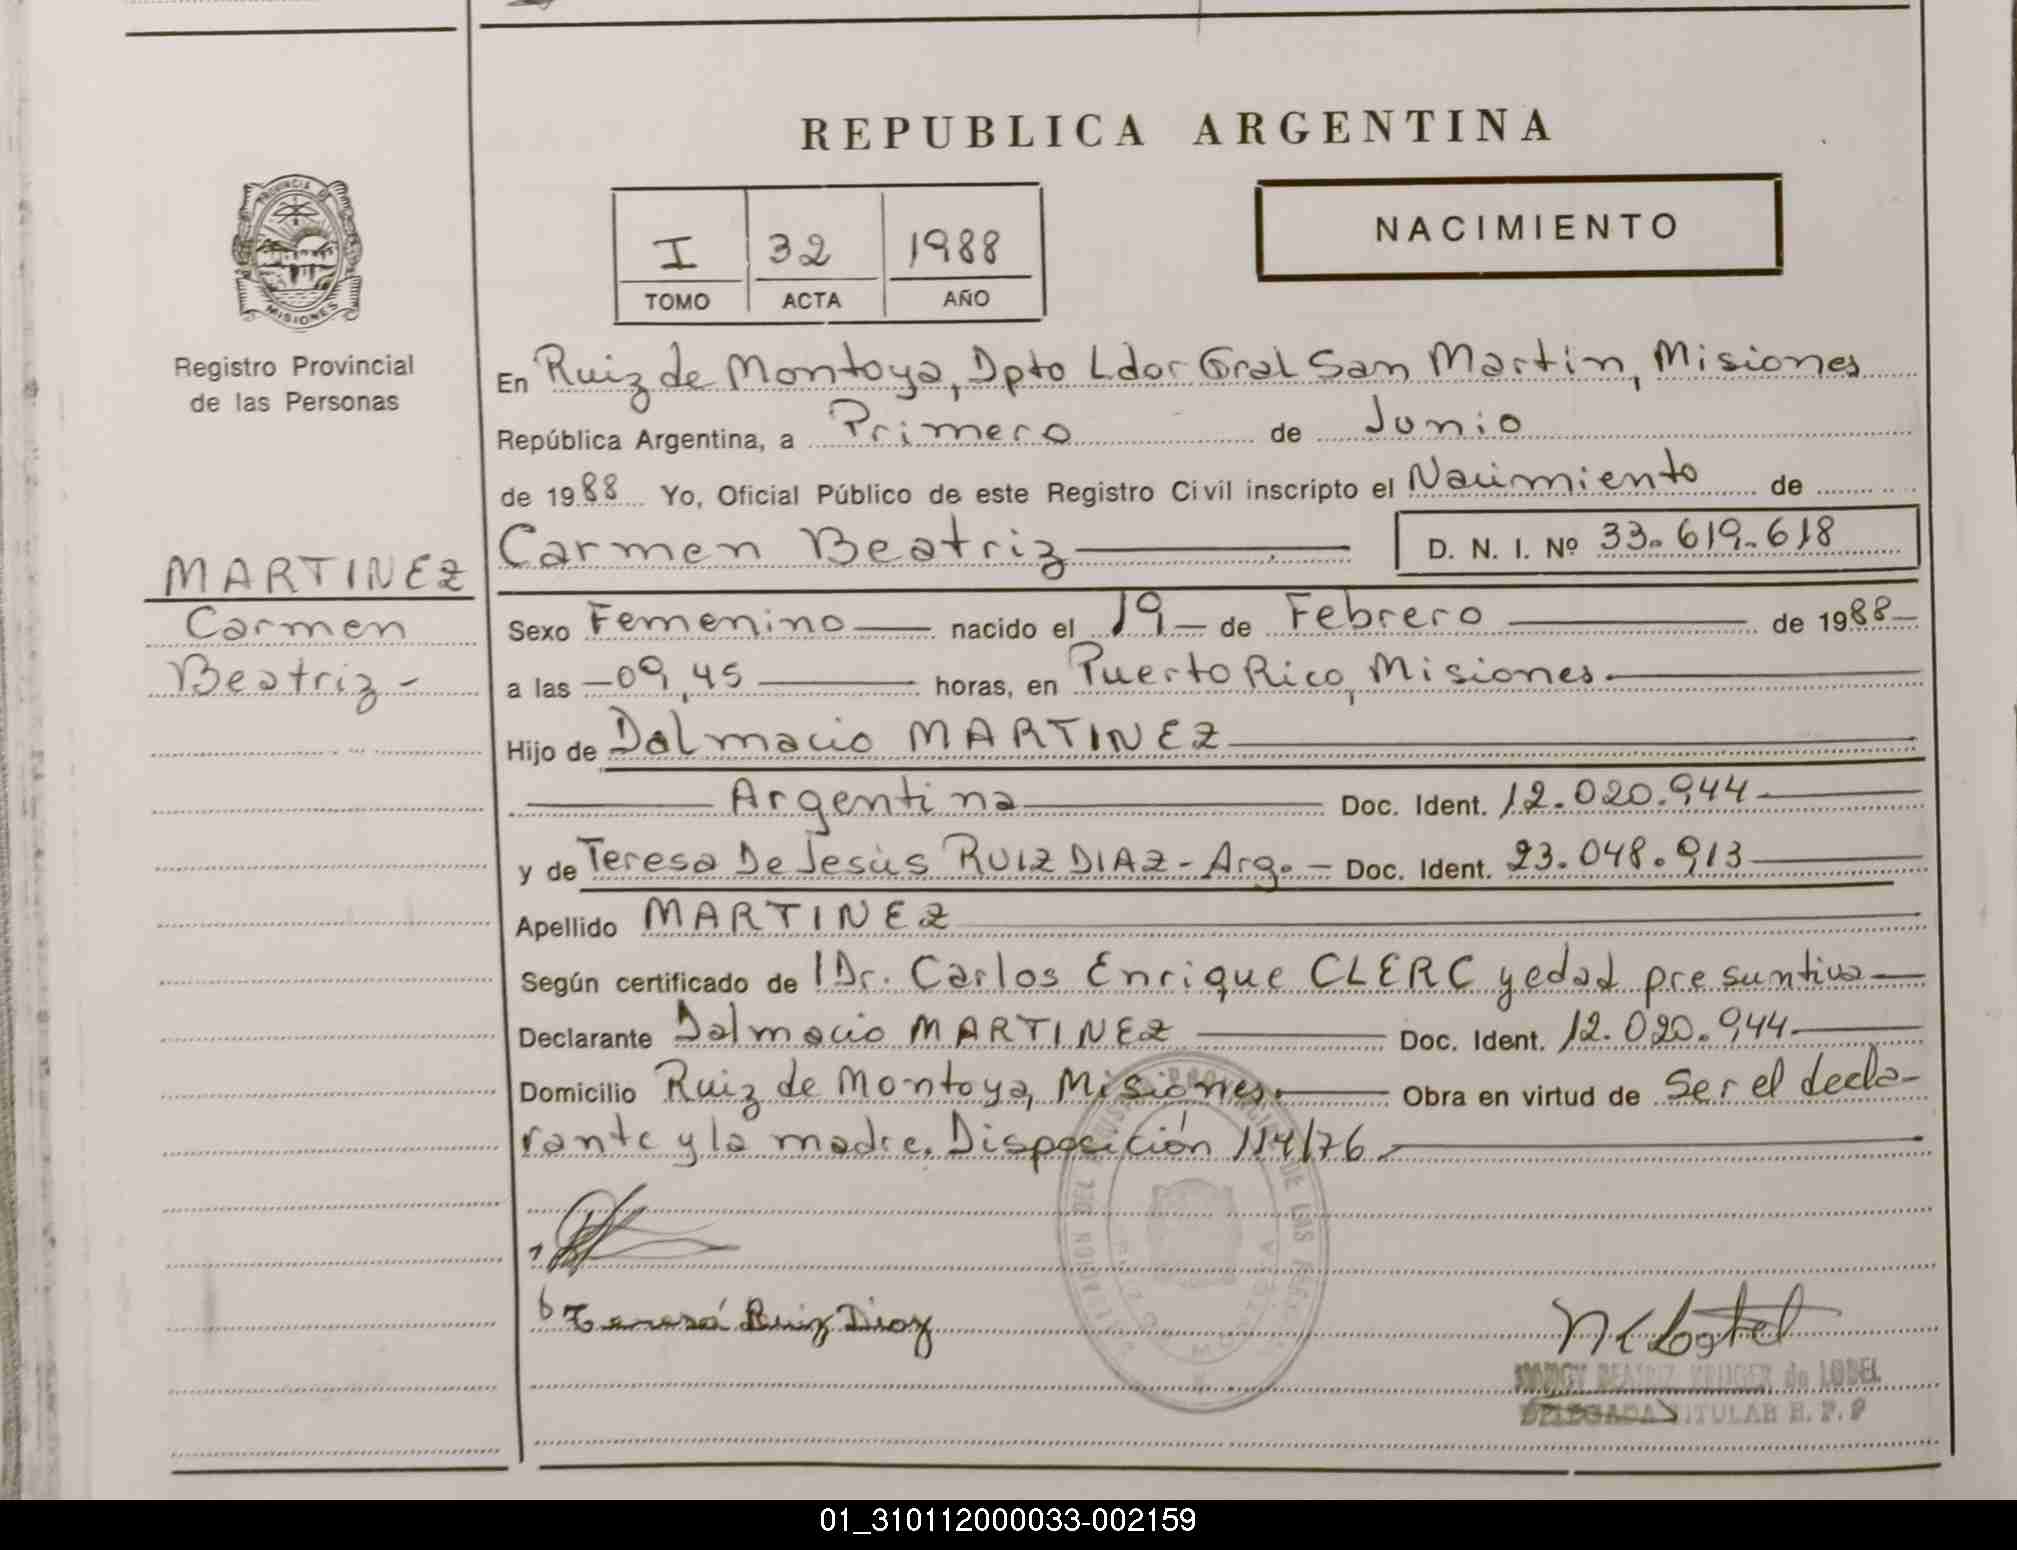 REPUBLICA ARGENTINA
PROVINCIA DE
MISIONES
Registro Provincial
de las Personas
I 32 1988
TOMO ACTA AÑO
NACIMIENTO
En Ruiz de Montoya, Dpto Ldor Gral San Martin, Misiones
República Argentina, a Primero de Junio
de 1988 Yo, Oficial Público de este Registro Civil inscripto el Nacimiento de
Carmen Beatriz D. N. I. Nº 33.619.618
MARTINEZ
Carmen
Beatriz -
Sexo Femenino nacido el 19 de Febrero de 1988
a las 09,45 horas, en Puerto Rico, Misiones.
Hijo de Dalmacio MARTINEZ
Argentina Doc. Ident. 12.020.944
y de Teresa De Jesús RUIZ DIAZ - Arg. - Doc. Ident. 23.048.913
Apellido MARTINEZ
Según certificado de Dr. Carlos Enrique CLERC y edad presuntiva
Declarante Dalmacio MARTINEZ Doc. Ident. 12.020.944
Domicilio Ruiz de Montoya, Misiones. Obra en virtud de Ser el decla-
rante y la madre. Disposición 114/76
Teresa Ruiz Diaz
BEATRIZ KRUGER de LOBEL
DELEGADA TITULAR R. P. P
01_310112000033-002159